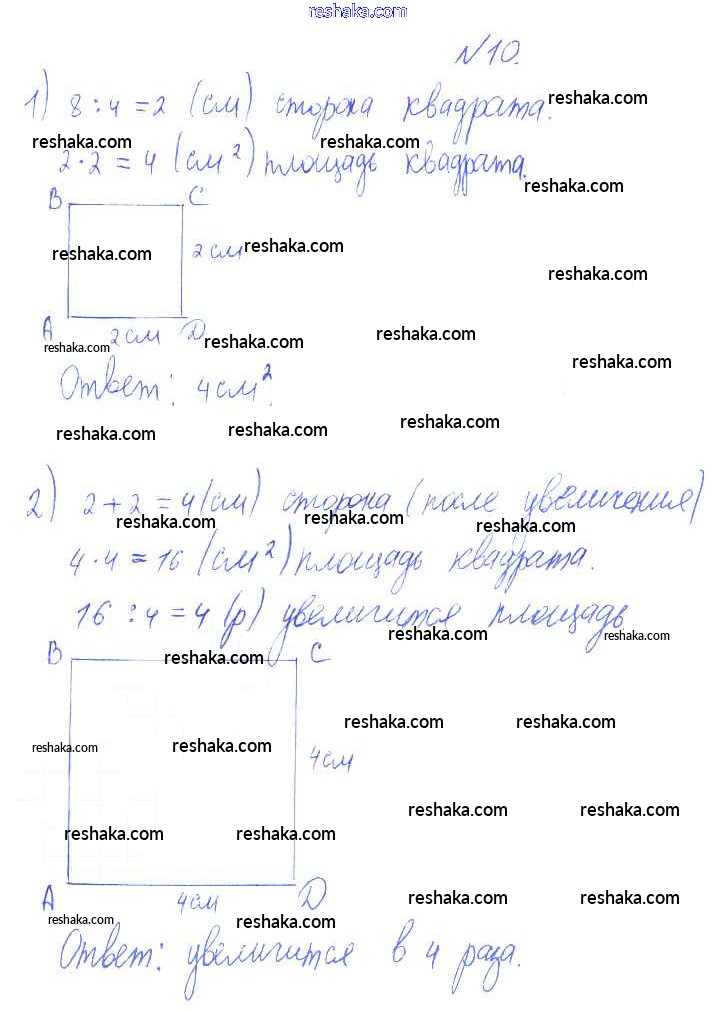 reshaka.com
№10.
1) 8 : 4 = 2 (см) сторона квадрата.
reshaka.com
reshaka.com reshaka.com
2 · 2 = 4 (см²) площадь квадрата.
reshaka.com
B C
reshaka.com 2 см reshaka.com
reshaka.com
A 2 см D
reshaka.com reshaka.com reshaka.com
reshaka.com
Ответ: 4 см².
reshaka.com reshaka.com reshaka.com
2) 2 + 2 = 4 (см) сторона (после увеличения)
reshaka.com reshaka.com reshaka.com
4 · 4 = 16 (см²) площадь квадрата.
16 : 4 = 4 (р) увеличится площадь
reshaka.com reshaka.com
B reshaka.com C
reshaka.com reshaka.com
reshaka.com reshaka.com 4 см
reshaka.com reshaka.com
reshaka.com reshaka.com
A 4 см D
reshaka.com reshaka.com
reshaka.com reshaka.com
Ответ: увеличится в 4 раза.